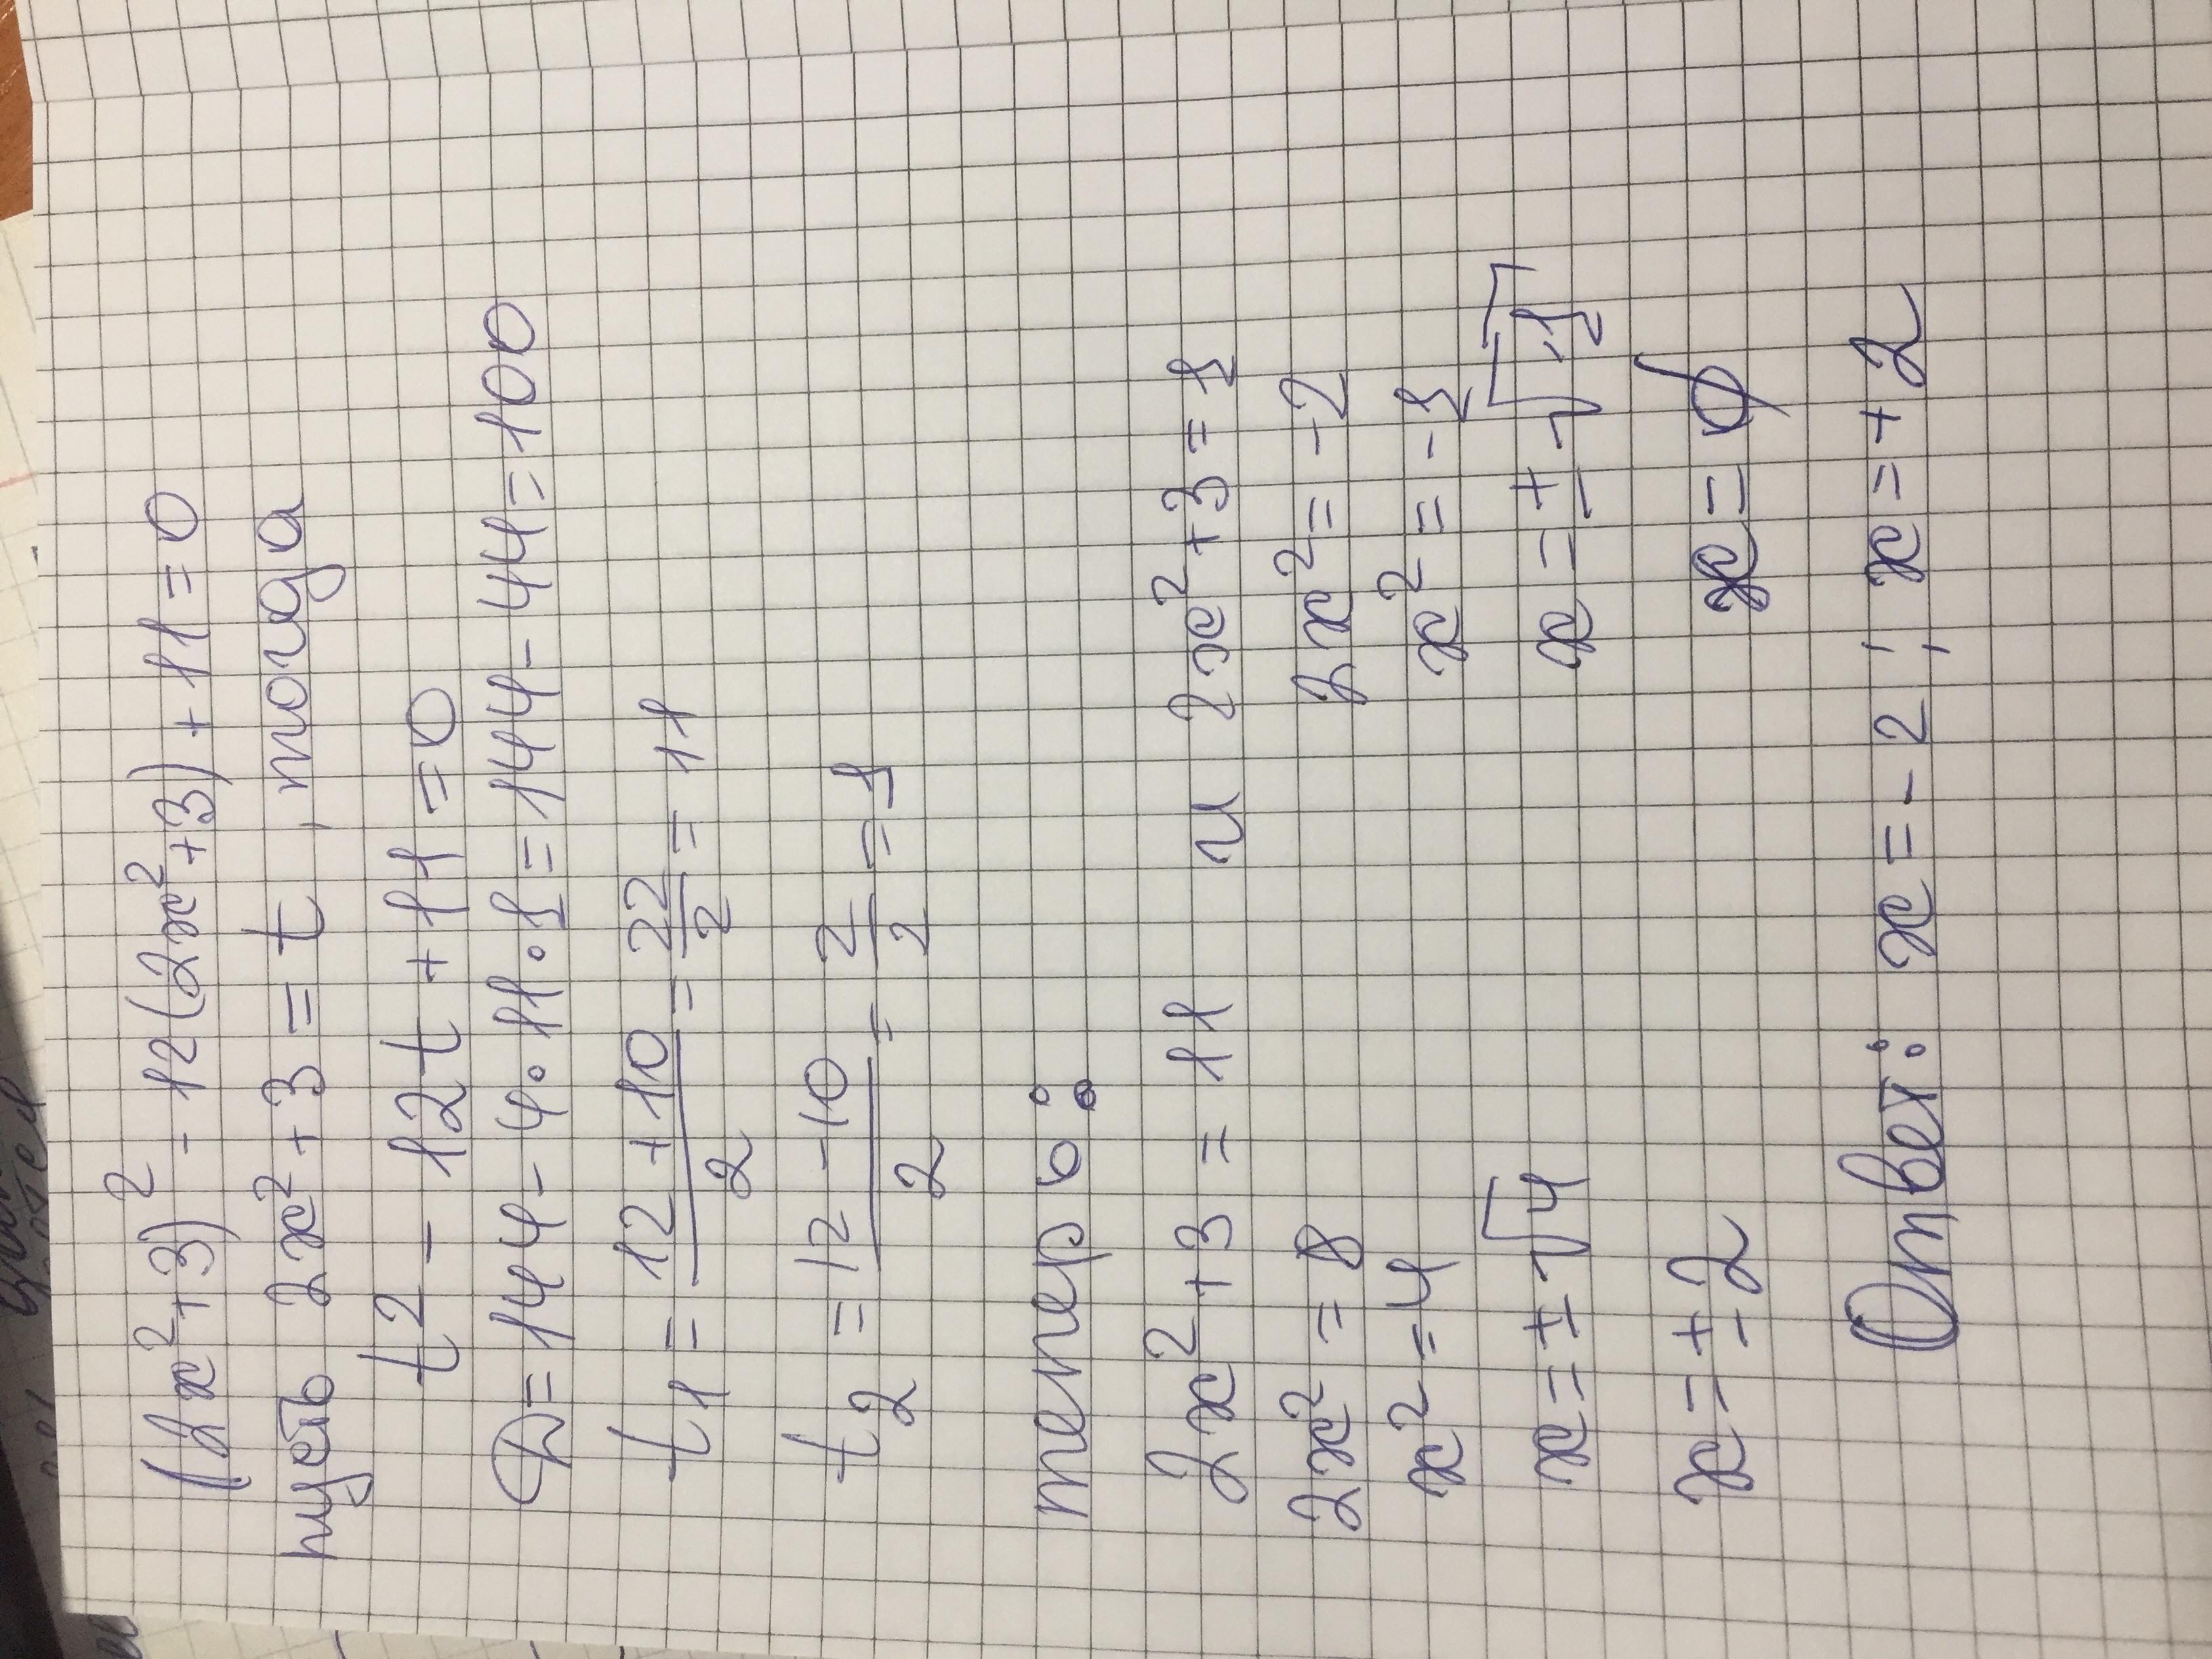 (2x²+3)² - 12(2x²+3) + 11 = 0
пусть 2x²+3 = t , тогда
t² - 12t + 11 = 0
D = 144 - 4·11·1 = 144 - 44 = 100
t1 = (12+10)/2 = 22/2 = 11
t2 = (12-10)/2 = 2/2 = 1
теперь:
2x²+3 = 11 и 2x²+3 = 1
2x² = 8 2x² = -2
x² = 4 x² = -1
x = ±√4 x = ±√-1
x = ±2 x = ∅
Ответ: x = -2 ; x = +2